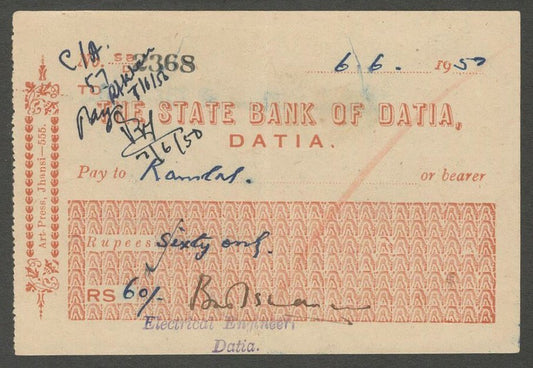 C/A. No. SB 2368 6.6. 1950
57
Pay
7/6/50
TO
THE STATE BANK OF DATIA,
DATIA.
Pay to Ramlal. or bearer
Rupees Sixty only.
RS 60/-
Electrical Engineer,
Datia.
Art Press, Jhansi—555.